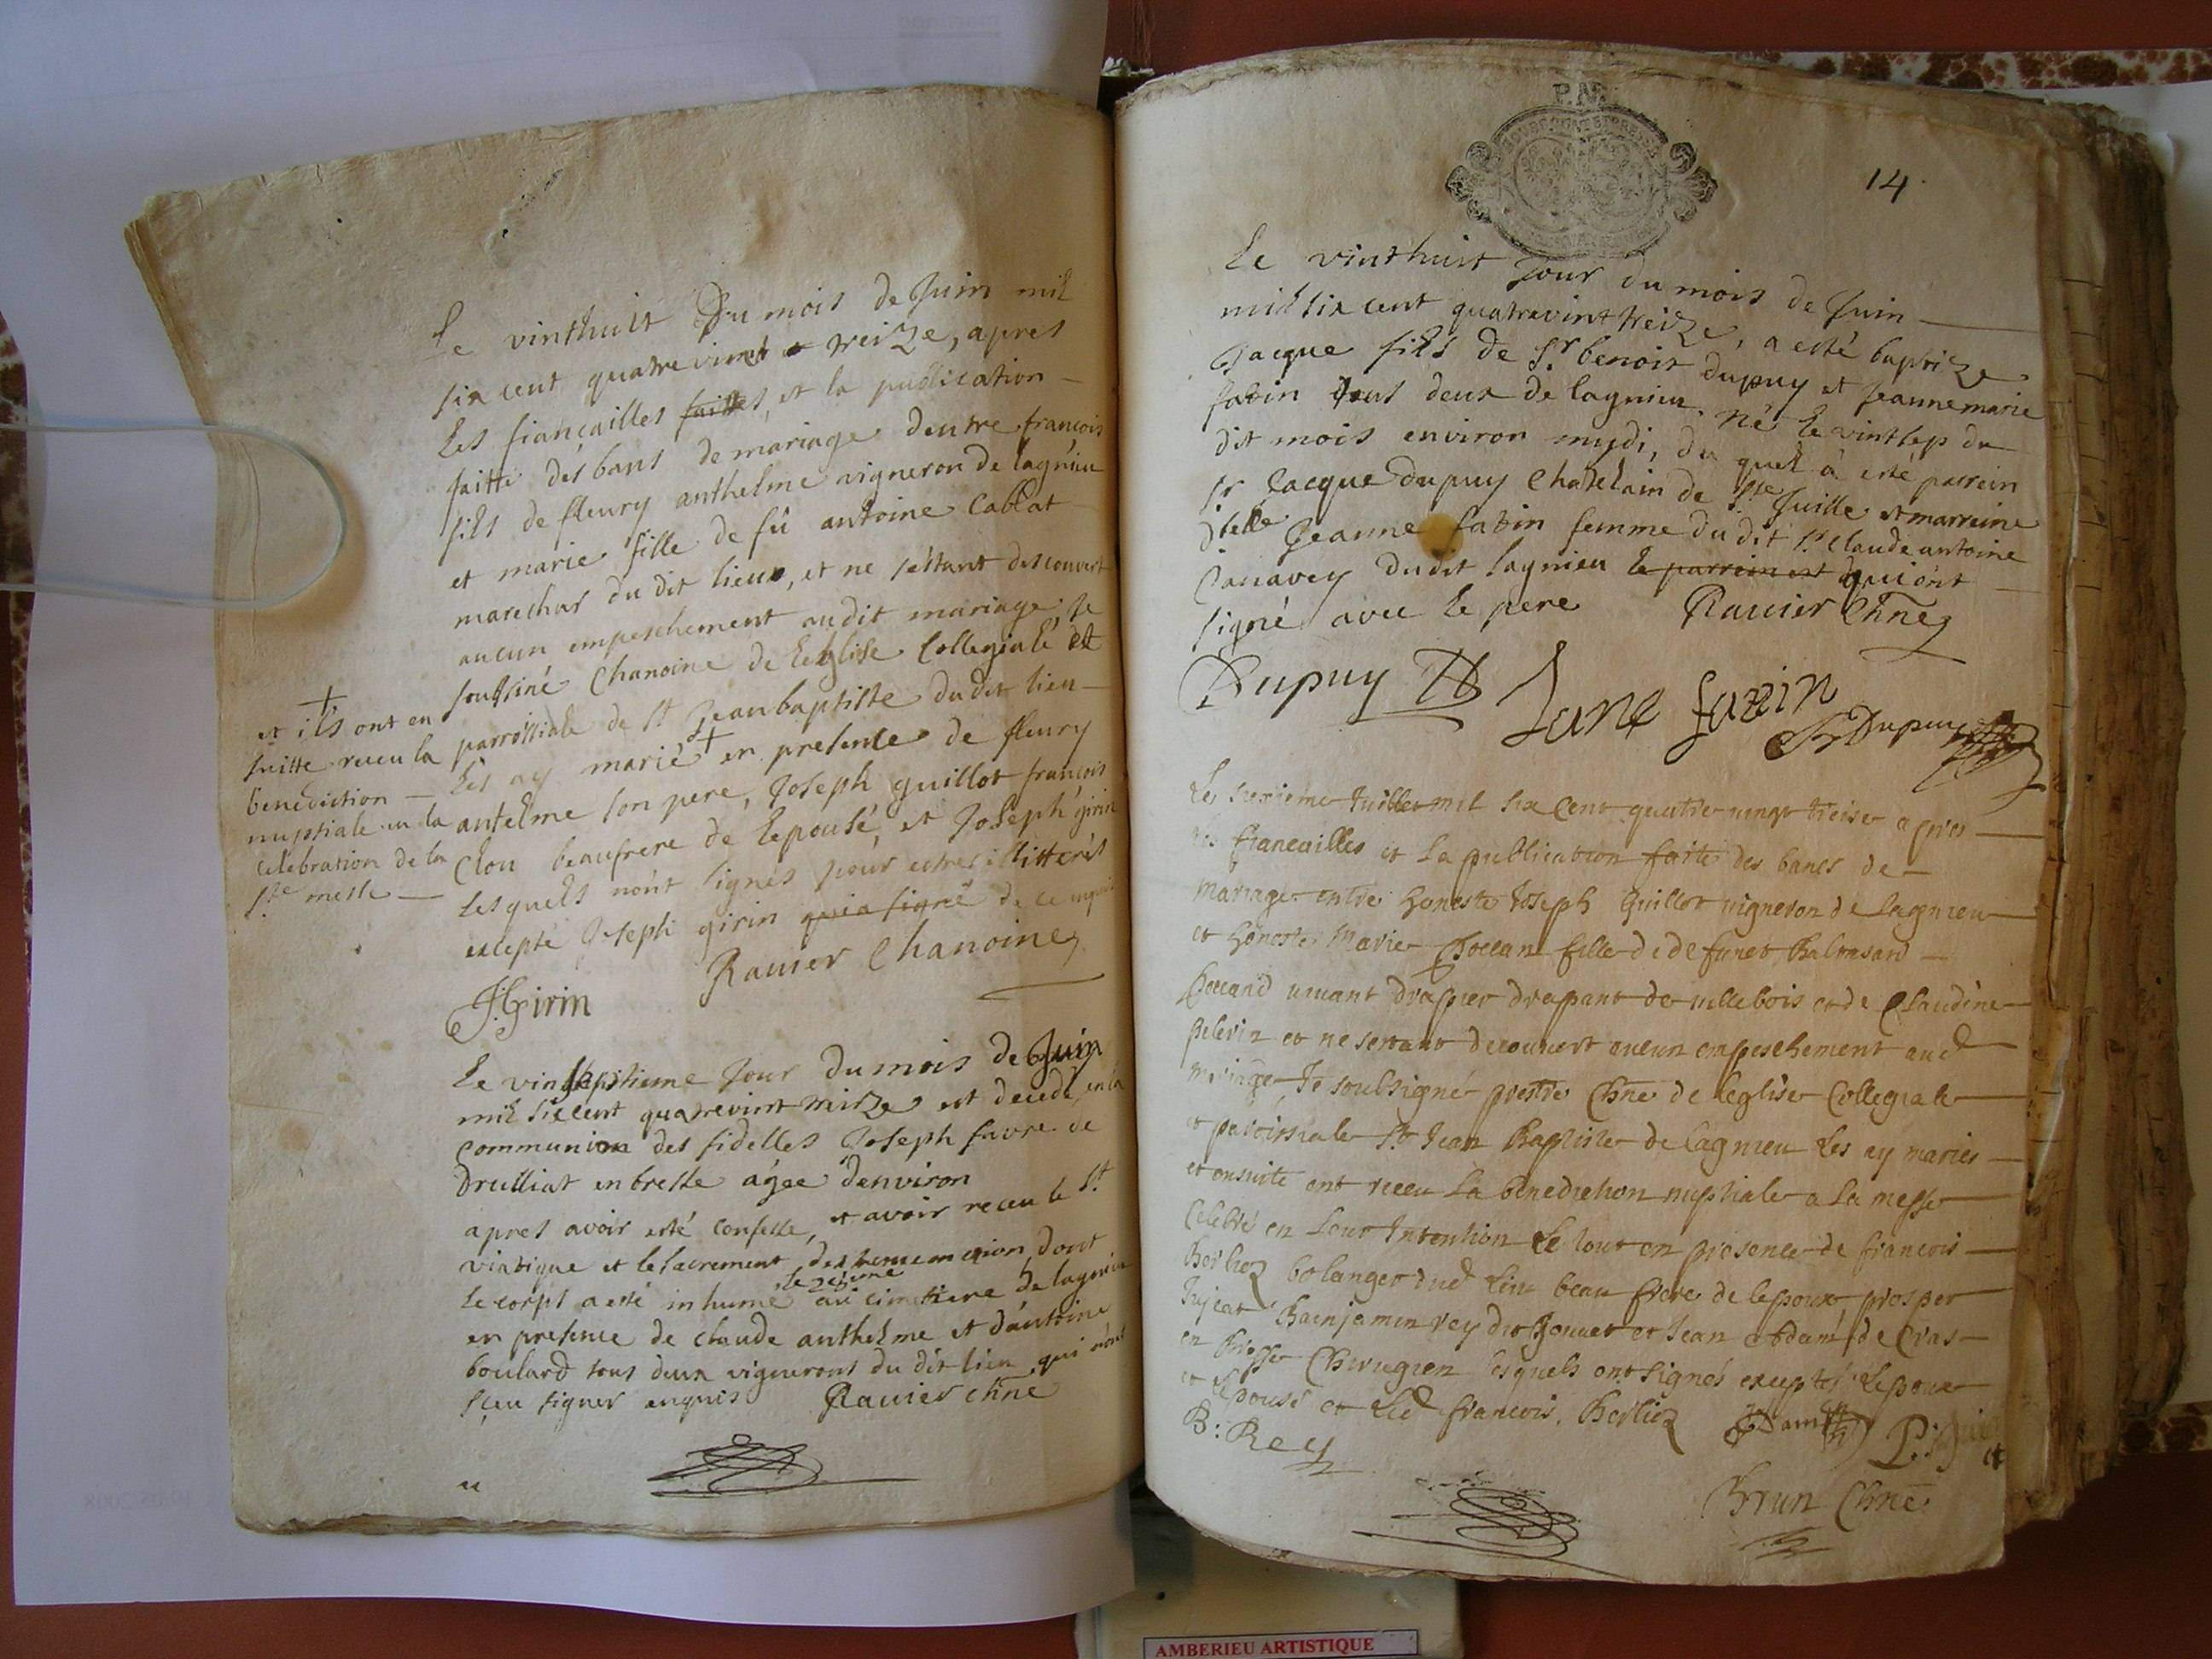 Le vinthuit Du mois de Juin mil
six cent quatrevint et treize, apres
les fiançailles faittes, et la publication
faitte des bans de mariage dentre françois
fils de fleury anthelme vigneron de lagnieu
et marie fille de fû antoine Cablat
marechar du dit lieux, et ne s'éstant descouvert
aucun empeschement audit mariage Je
soubsiné Chanoine de Leglise Collegiale et
parroissiale de St Jeanbaptiste dudit lieu
les ay marié + en presence de fleury
antelme son pere, Joseph guillot françois
Clou beaufrere de lepousé, et Joseph girin
lesquels n'ont signés pour estre illitterés
excepté Joseph girin qui a signé de ce enquis
Ravier Chanoine
J Girin
+
et ils ont en
suitte receu la
benediction
nuptiale en la
celebration de la
Ste messe
Le vintseptieme Jour du mois de Juin
mil sixcent quatrevint treize est decedé en la
communion des fidelles Joseph favre de
Drulliat en bresse agée d'environ
apres avoir esté confessé, et avoir receu le St
viatique et le sacrement dextreme onction, dont
le corps a esté inhumé au cimetiere de lagnieu
en presence de claude anthelme et d'antoine
boulard tous deux vignerons du dit lieu qui n'ont
sçeu signer enquis Ravier chne
P.AR
14
Le vinthuit Jour du mois de Juin
mil six cent quatrevint treize, a esté baptize
Jacque fils de Sr. benoit dupuy et Jeanne marie
fabin tous deux de lagnieu. Né le vintsep du
dit mois environ mydi, du quel à esté parrein
Sr Jacque dupuy Chatelain de Ste Juille et marreine
dlelle Jeanne fabin femme du dit Sr Claude antoine
Canavey dudit lagnieu le parrein est qui ont
signé avec le pere Ravier Chne
Dupuy Jane fabin
Dupuy
Le sixieme Juillet mil six cent quatre vingt treise apres
les fiancailles et la publication faite des bancs de
mariage entre honeste Joseph Guillot vigneron de lagnieu
et honeste Marie fille de defunct Baltasard
vivant drapier drapant de villebois et de Claudine
pelerin et ne sestant decouvert aucun empeschement aud
mariage Je soubsigné prestre Chne de leglise Collegiale
et paroissiale St Jean Baptiste de lagnieu les ay mariés
et ensuite ont receu la benediction nuptiale a la messe
Celebré en leur Intention Le tout en presence de francois
Berlioz bolanger dud lieu beau frere de lepoux, prosper
Jujeat Bainjamin rey dit et Jean Adam de Cras
en bresse Chirugien lesquels ont signés exceptés lepoux
et lepouse et led francois Berlioz
B: Rey
Brun Chne
AMBERIEU ARTISTIQUE